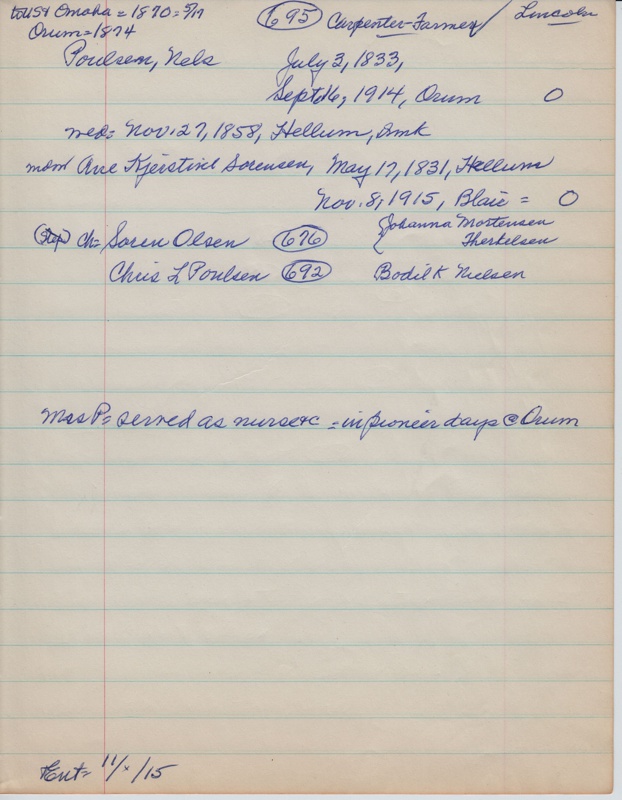 to US & Omaha = 1870 = 5/17
Orum = 1874
695
Carpenter-Farmer
Lincoln
Poulsen, Nels
July 3, 1833,
Sept 16, 1914, Orum O
wed = Nov. 27, 1858, Hellum, Dmk
Ane Kjerstine Sorensen, May 17, 1831, Hellum
Nov. 8, 1915, Blair = O
(Step) ch = Soren Olsen 676 { Johanna Mortensen
Therkelsen
Chris L Poulsen 692 Bodil K Nielsen
Mrs P = served as nurse &c = in pioneer days @ Orum
Ent = 11/x/15